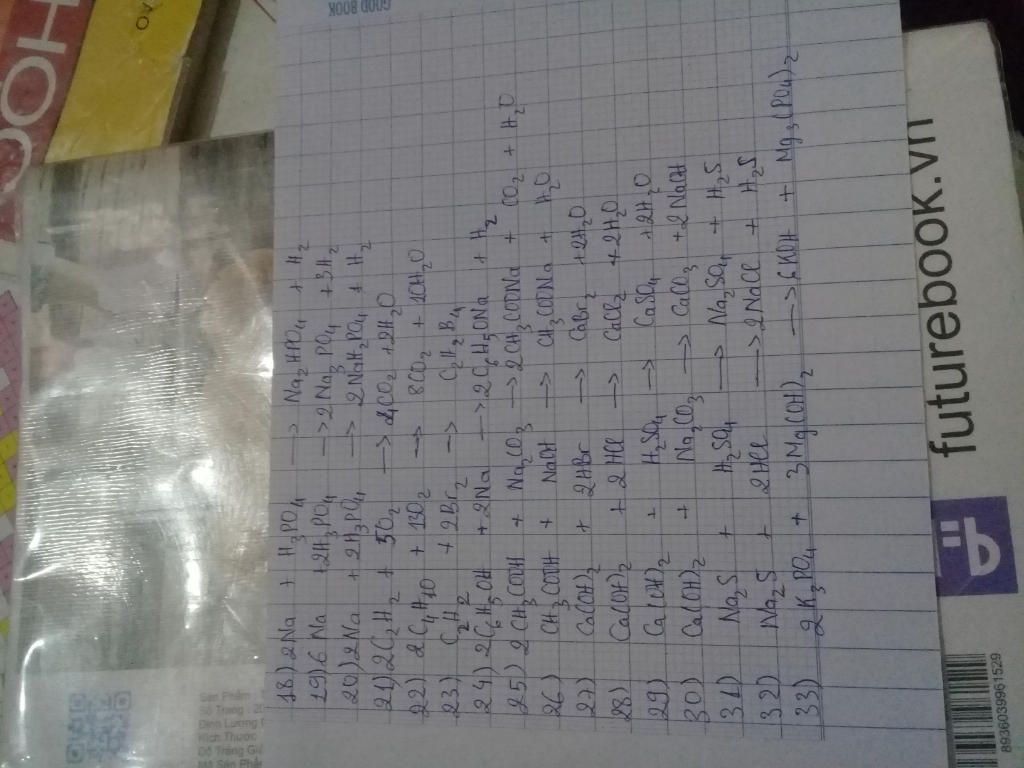 GOOD BOOK
18) 2Na + H3PO4 —> Na2HPO4 + H2
19) 6Na + 2H3PO4 —> 2Na3PO4 + 3H2
20) 2Na + 2H3PO4 —> 2NaH2PO4 + H2
21) 2C2H2 + 5O2 —> 4CO2 + 2H2O
22) 2C4H10 + 13O2 —> 8CO2 + 10H2O
23) C2H2 + 2Br2 —> C2H2Br4
24) 2C6H5OH + 2Na —> 2C6H5ONa + H2
25) 2CH3COOH + Na2CO3 —> 2CH3COONa + CO2 + H2O
26) CH3COOH + NaOH —> CH3COONa + H2O
27) Ca(OH)2 + 2HBr —> CaBr2 + 2H2O
28) Ca(OH)2 + 2HCl —> CaCl2 + 2H2O
29) Ca(OH)2 + H2SO4 —> CaSO4 + 2H2O
30) Ca(OH)2 + Na2CO3 —> CaCO3 + 2NaOH
31) Na2S + H2SO4 —> Na2SO4 + H2S
32) Na2S + 2HCl —> 2NaCl + H2S
33) 2K3PO4 + 3Mg(OH)2 —> 6KOH + Mg3(PO4)2
futurebook.vn
8936039961529
Sản Phẩm :
Số Trang : 20
Định Lượng
Kích Thước
Độ Trắng Giấ
Mã Sản Phẩ